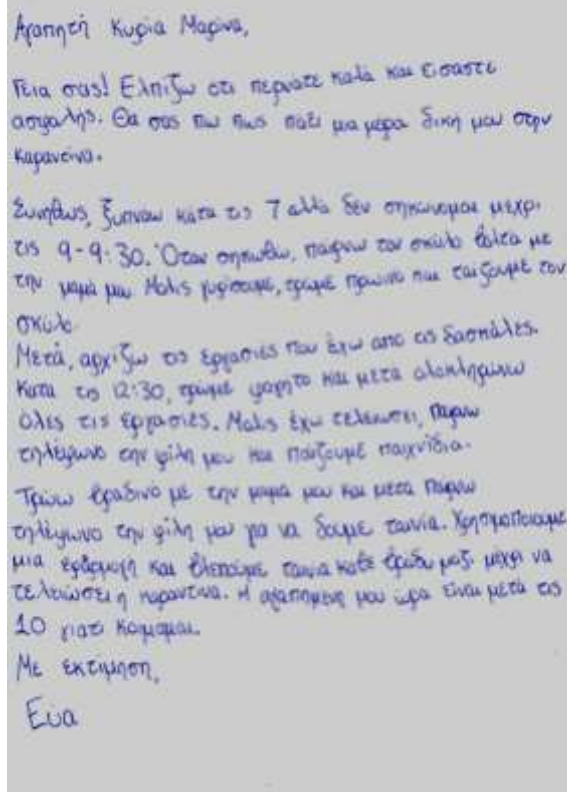 Αγαπητή Κυρία Μαρίνα,
Γεια σας! Ελπίζω οτι περνάτε καλά και εισαστε
ασφαλής. Θα σας πω πως πάει μια μέρα δική μου στην
καραντίνα.
Συνήθως, ξυπνάω κάτα τις 7 αλλά δεν σηκώνομαι μέχρι
τις 9-9:30. Όταν σηκωθώ, παίρνω τον σκύλο βόλτα με
την μαμά μου. Μόλις γυρίσουμε, τρώμε πρωινό και ταΐζουμε τον
σκύλο.
Μετά, αρχίζω τις εργασίες που έχω από τις δασκάλες.
Κατα τις 12:30, τρώμε φαγητό και μετά ολοκληρώνω
όλες τις εργασίες. Μόλις έχω τελειώσει, παίρνω
τηλέφωνο την φίλη μου και παίζουμε παιχνίδια.
Τρώω βραδινό με την μαμά μου και μετά παίρνω
τηλέφωνο την φίλη μου για να δουμε ταινία. Χρησιμοποιουμε
μια εφαρμογή και βλέπουμε ταινία κάθε βράδυ μαζί μέχρι να
τελειώσει η καραντίνα. Η αγαπημένη μου ώρα είναι μετά τις
10 γιατί κοιμάμαι.
Με εκτίμηση,
Ευα